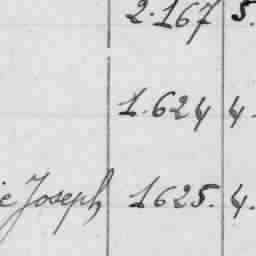 2.167 5.
1.624 4.
Joseph 1625. 4.